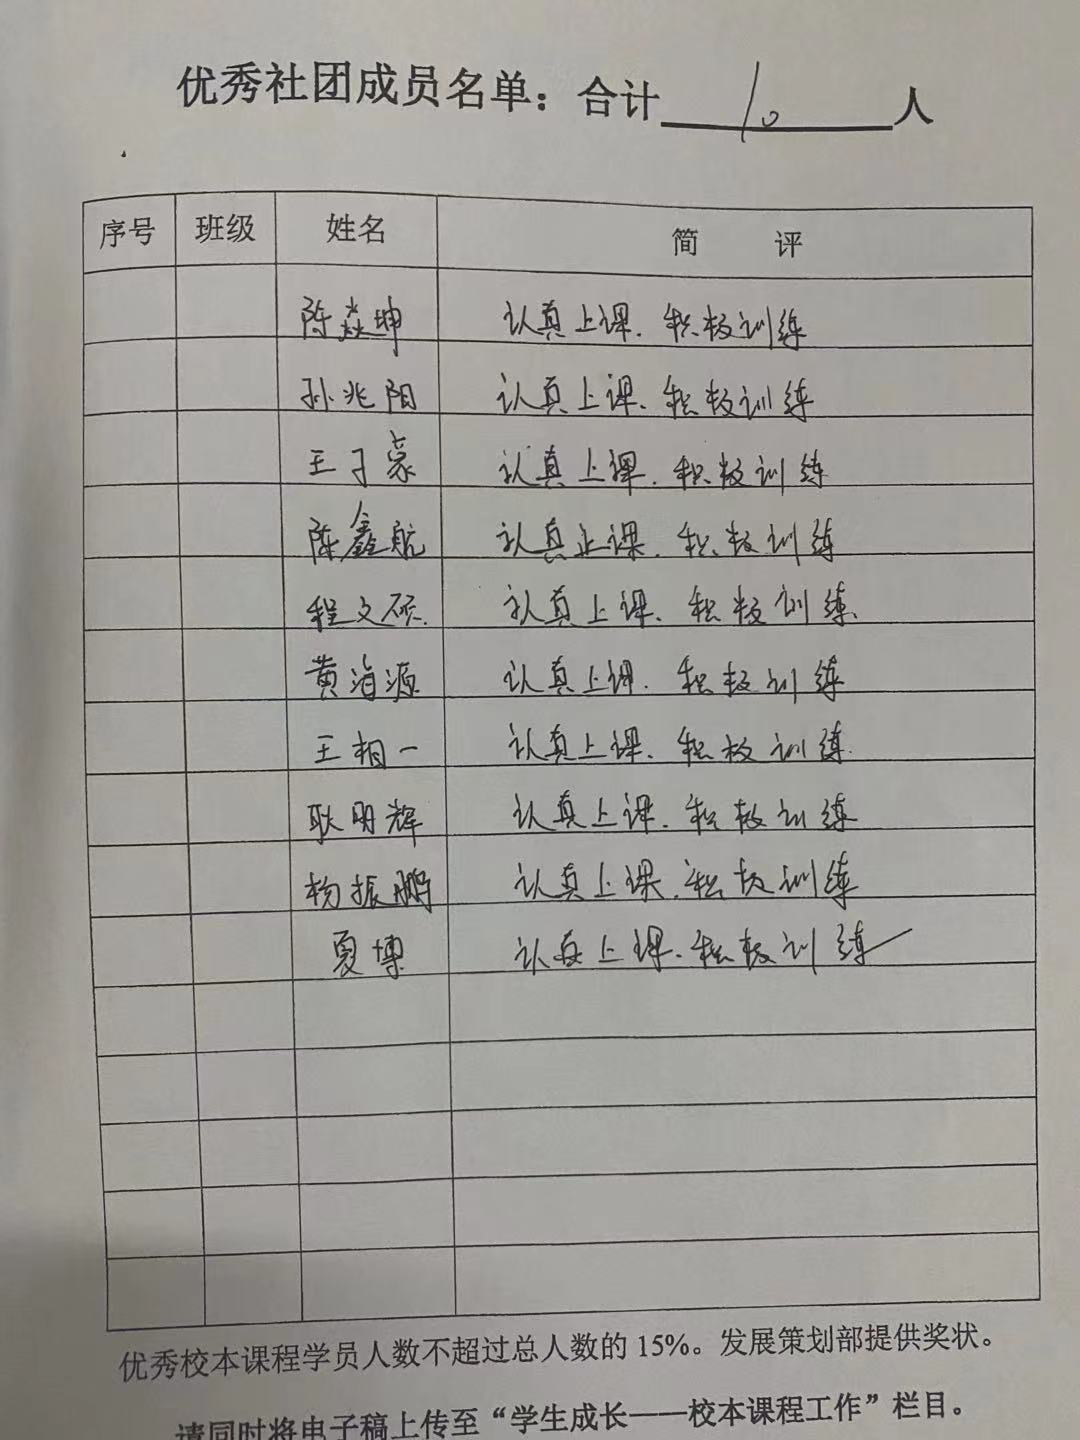 优秀社团成员名单：合计 10 人
序号 班级 姓名 简 评
陈焱坤 认真上课、积极训练
孙兆阳 认真上课、积极训练
王子豪 认真上课、积极训练
陈鑫航 认真上课、积极训练
程文硕 认真上课、积极训练
黄海源 认真上课、积极训练
王相一 认真上课、积极训练
耿明辉 认真上课、积极训练
杨振鹏 认真上课、积极训练
夏博 认真上课、积极训练
优秀校本课程学员人数不超过总人数的 15%。发展策划部提供奖状。
请同时将电子稿上传至“学生成长——校本课程工作”栏目。